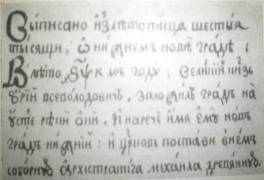 Выписано из лѣтописца шестыя
тысящи, ѿ нижнемъ новѣ градѣ :
В лѣто году, великїй кнѧзь
Юрїй всеволодовичь, заложилъ градъ на
устїе рѣки ѻки, и нарече имя ему новъ
градъ нижнїй : и церковь постави в немъ
соборную архистратига михаила древянную